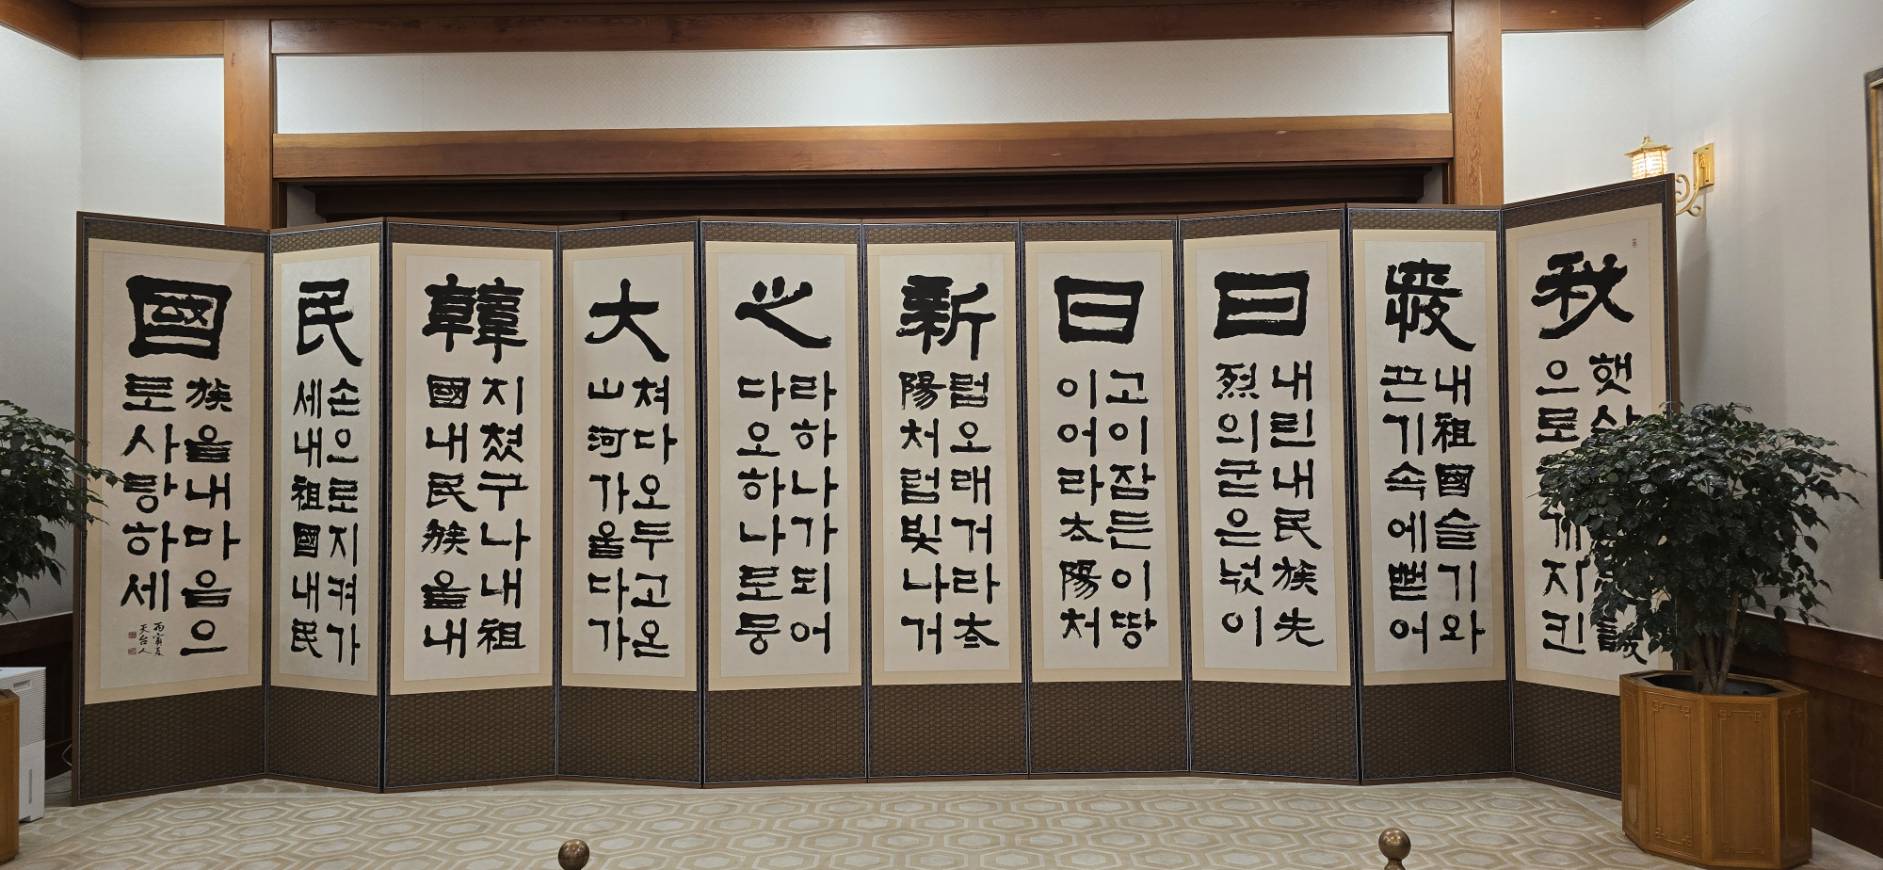 我
햇
으로
게지킨
愛
내祖國슬기와
끈기속에뻗어
日
내린내民族先
烈의굳은넋이
日
고이잠든이땅
이어라太陽처
新
럼오래거라太
陽처럼빛나거
之
라하나가되어
다오하나로뭉
大
쳐다오두고온
山河가울다가
韓
지쳤구나내祖
國내民族을내
民
손으로지켜가
세내祖國내民
國
族을내마음으
로사랑하세
丙寅夏
天台人